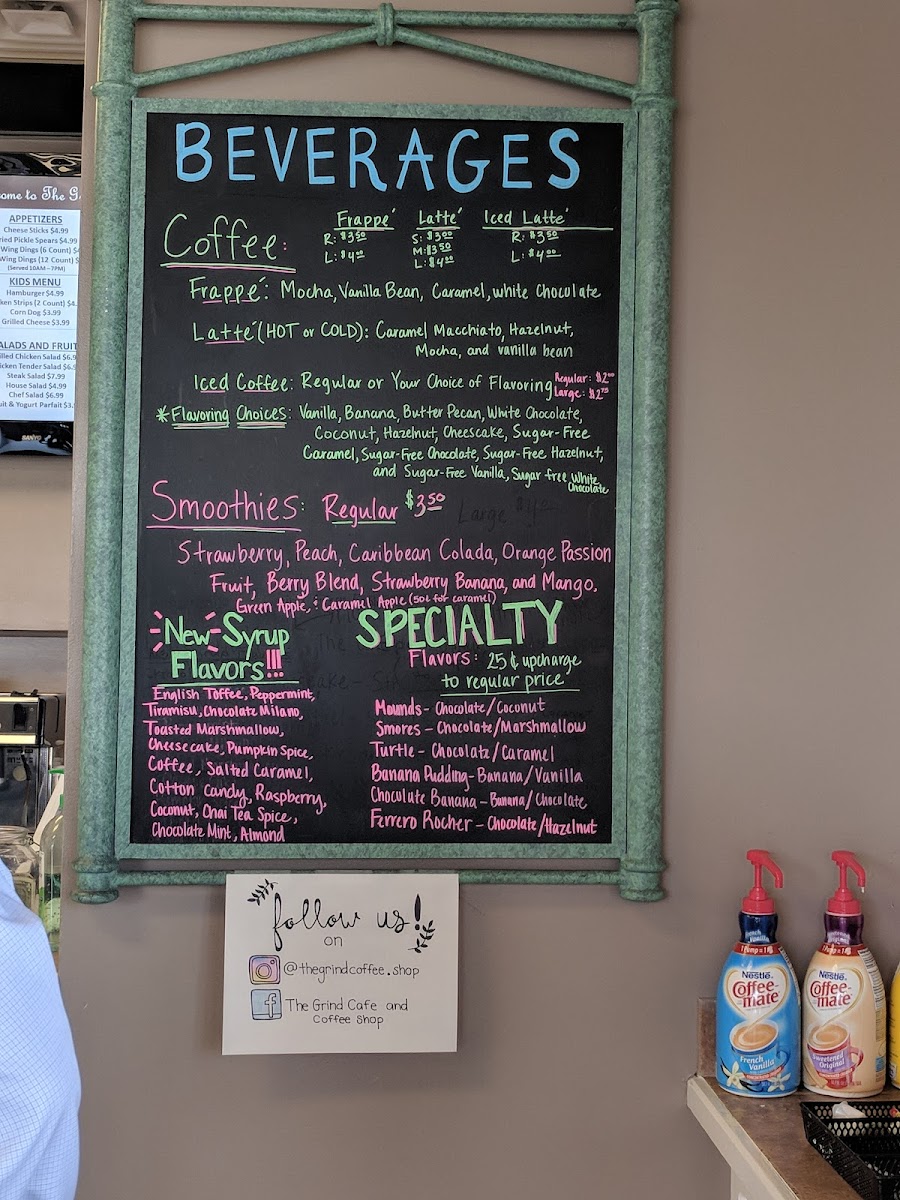 BEVERAGES
Coffee:
Frappé
R: $3.50
L: $4.00
Latté
S: $3.00
M: $3.50
L: $4.00
Iced Latté
R: $3.50
L: $4.00
Frappé: Mocha, Vanilla Bean, Caramel, white Chocolate
Latté (HOT or COLD): Caramel Macchiato, Hazelnut,
Mocha, and vanilla bean
Iced Coffee: Regular or Your Choice of Flavoring
Regular: $2.00
Large: $2.75
*Flavoring Choices: Vanilla, Banana, Butter Pecan, White Chocolate,
Coconut, Hazelnut, Cheescake, Sugar-Free
Caramel, Sugar-Free Chocolate, Sugar-Free Hazelnut,
and Sugar-Free Vanilla, Sugar free White
Chocolate
Smoothies: Regular $3.50
Large
Strawberry, Peach, Caribbean Colada, Orange Passion
Fruit, Berry Blend, Strawberry Banana, and Mango.
Green Apple, & Caramel Apple (50¢ for caramel)
New Syrup
Flavors!!!
English Toffee, Peppermint,
Tiramisu, Chocolate Milano,
Toasted Marshmallow,
Cheesecake, Pumpkin Spice,
Coffee, Salted Caramel,
Cotton Candy, Raspberry,
Coconut, Chai Tea Spice,
Chocolate Mint, Almond
SPECIALTY
Flavors: 25¢ upcharge
to regular price
Mounds - Chocolate/Coconut
Smores - Chocolate/Marshmallow
Turtle - Chocolate/Caramel
Banana Pudding - Banana/Vanilla
Chocolate Banana - Banana/Chocolate
Ferrero Rocher - Chocolate/Hazelnut
follow us!
on
@thegrindcoffee.shop
f The Grind Cafe and
Coffee Shop
ome to The G
APPETIZERS
Cheese Sticks $4.99
ried Pickle Spears $4.99
Wing Dings (6 Count) $
Wing Dings (12 Count) $
(Served 10AM - 7PM)
KIDS MENU
Hamburger $4.99
ken Strips (2 Count) $4.
Corn Dog $3.99
Grilled Cheese $3.99
ALADS AND FRUIT
illed Chicken Salad $6.9
icken Tender Salad $6.
Steak Salad $7.99
House Salad $4.99
Chef Salad $6.99
uit & Yogurt Parfait $3.
SANYO
French
Vanilla
1 Pump = 1
Nestlé
Coffee-
mate
French
Vanilla
1 Pump = 1
Nestlé
Coffee-
mate
Sweetened
Original